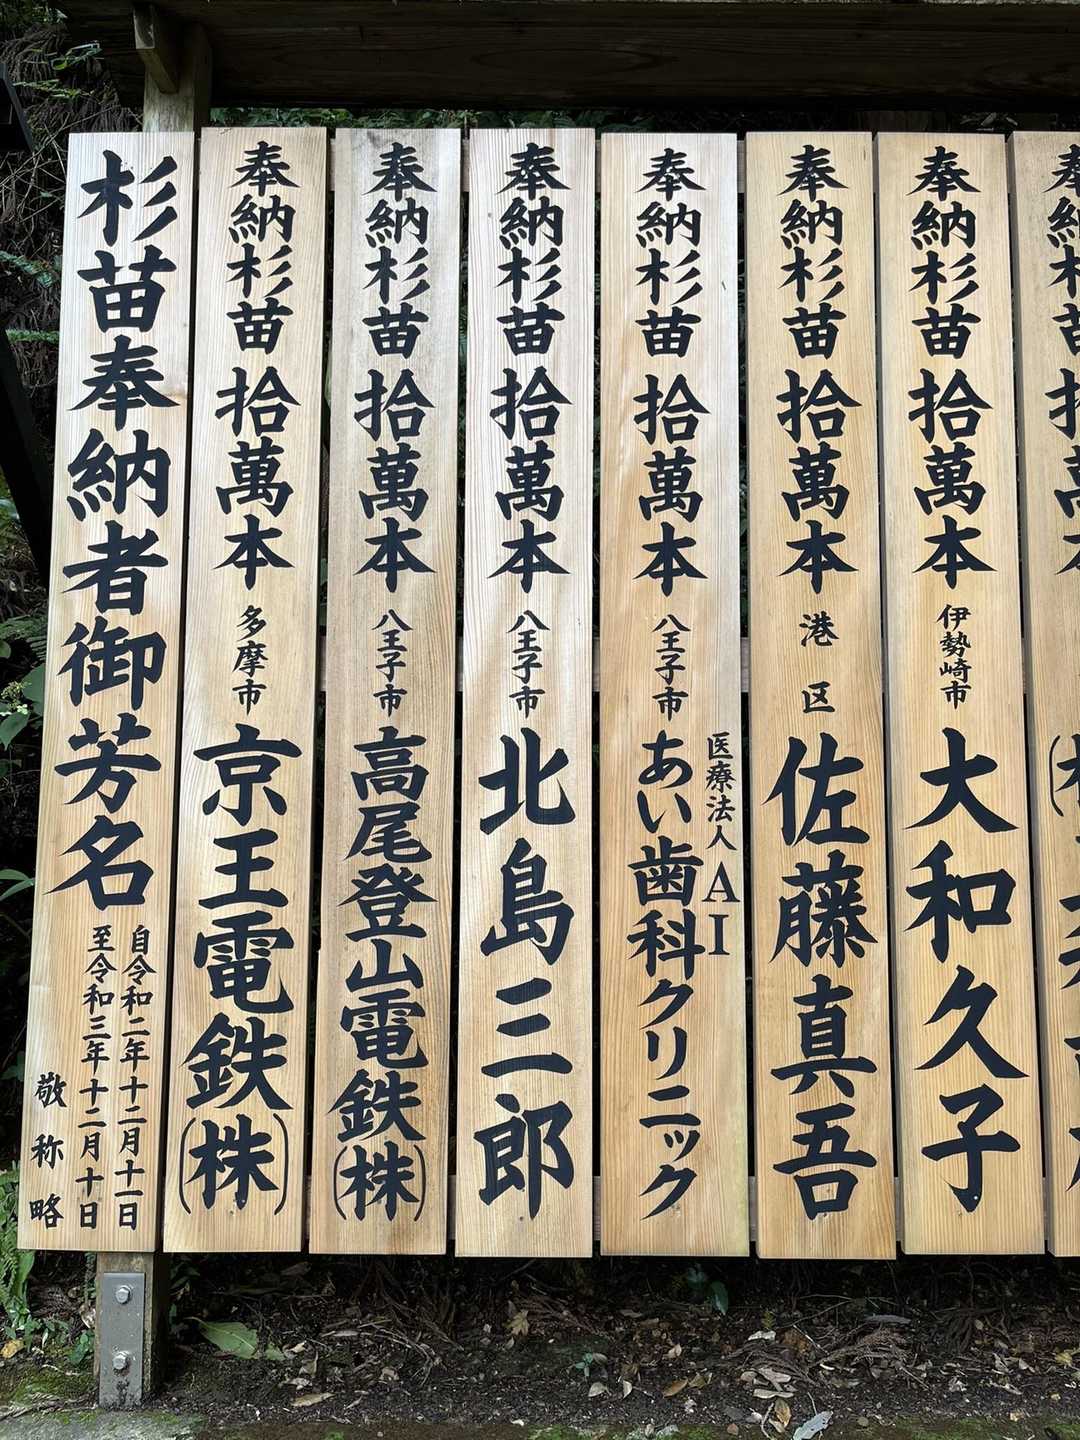 杉苗奉納者御芳名
自令和二年十二月十一日
至令和三年十二月十日
敬称略
奉納杉苗拾萬本 多摩市 京王電鉄(株)
奉納杉苗拾萬本 八王子市 高尾登山電鉄(株)
奉納杉苗拾萬本 八王子市 北島三郎
奉納杉苗拾萬本 八王子市
医療法人AI
あい歯科クリニック
奉納杉苗拾萬本 港区 佐藤真吾
奉納杉苗拾萬本 伊勢崎市 大和久子